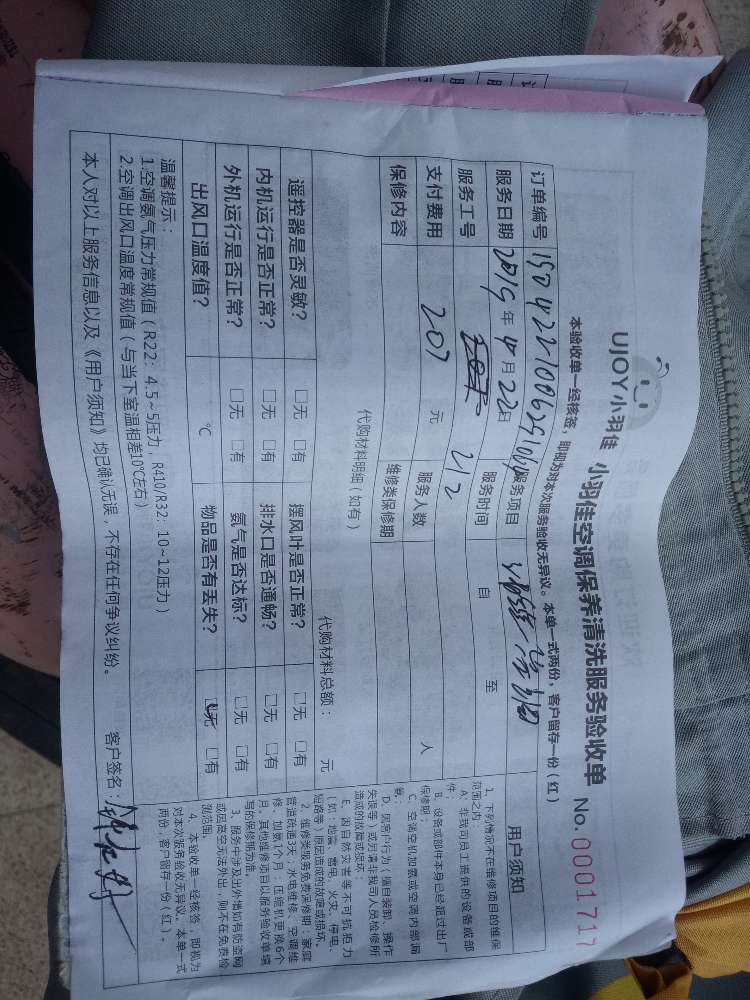 UJOY小羽佳 小羽佳空调保养清洗服务验收单 No.0001717
本验收单一经核签，即视为对本次服务验收无异议。本单一式两份，客户留存一份（红）
订单编号 服务项目
服务日期 2015年4月22日 服务时间 自 至
服务工号 212
支付费用 207 元 服务人数 人
保修内容 维修类保修期
代购材料明细（如有） 代购材料总额： 元
遥控器是否灵敏？ □无 □有 摆风叶是否正常？ □无 □有
内机运行是否正常？ □无 □有 排水口是否通畅？ □无 □有
外机运行是否正常？ □无 □有 氨气是否达标？ □无 □有
出风口温度值？ ℃ 物品是否有丢失？ □无 □有
温馨提示：
1.空调氨气压力常规值（R22：4.5~5压力，R410/R32：10~12压力）
2.空调出风口温度常规值（与当下室温相差10℃左右）
本人对以上服务信息以及《用户须知》均已确认无误，不存在任何争议纠纷。 客户签名：
用户须知
1、下列情况不在维修项目的维保
范围之内：
A、非我司员工提供的设备或部
件；
B、设备或部件本身已经超过出厂
保修期；
C、空调空机加氨或空调内部漏
氨；
D、因客户行为（擅自装卸、操作
失误等）或另请非我司人员检修所
造成的故障或损坏；
E、因自然灾害等不可抗拒力
（如：地震、雷电、火灾、停电、
短路等）原因造成的故障或损坏。
2、维修类服务免费保修期：家庭
管道疏通3天；水电维修、空调维
修、加氨1个月；压缩机更换6个
月；其他维修项目以服务验收单填
写的保修期为准。
3、服务中涉及出外墙如有防盗网
或因高空无法外出，则不在免费检
测范围。
4、本验收单一经核签，即视为
对本次服务验收无异议。本单一式
两份，客户留存一份（红）。